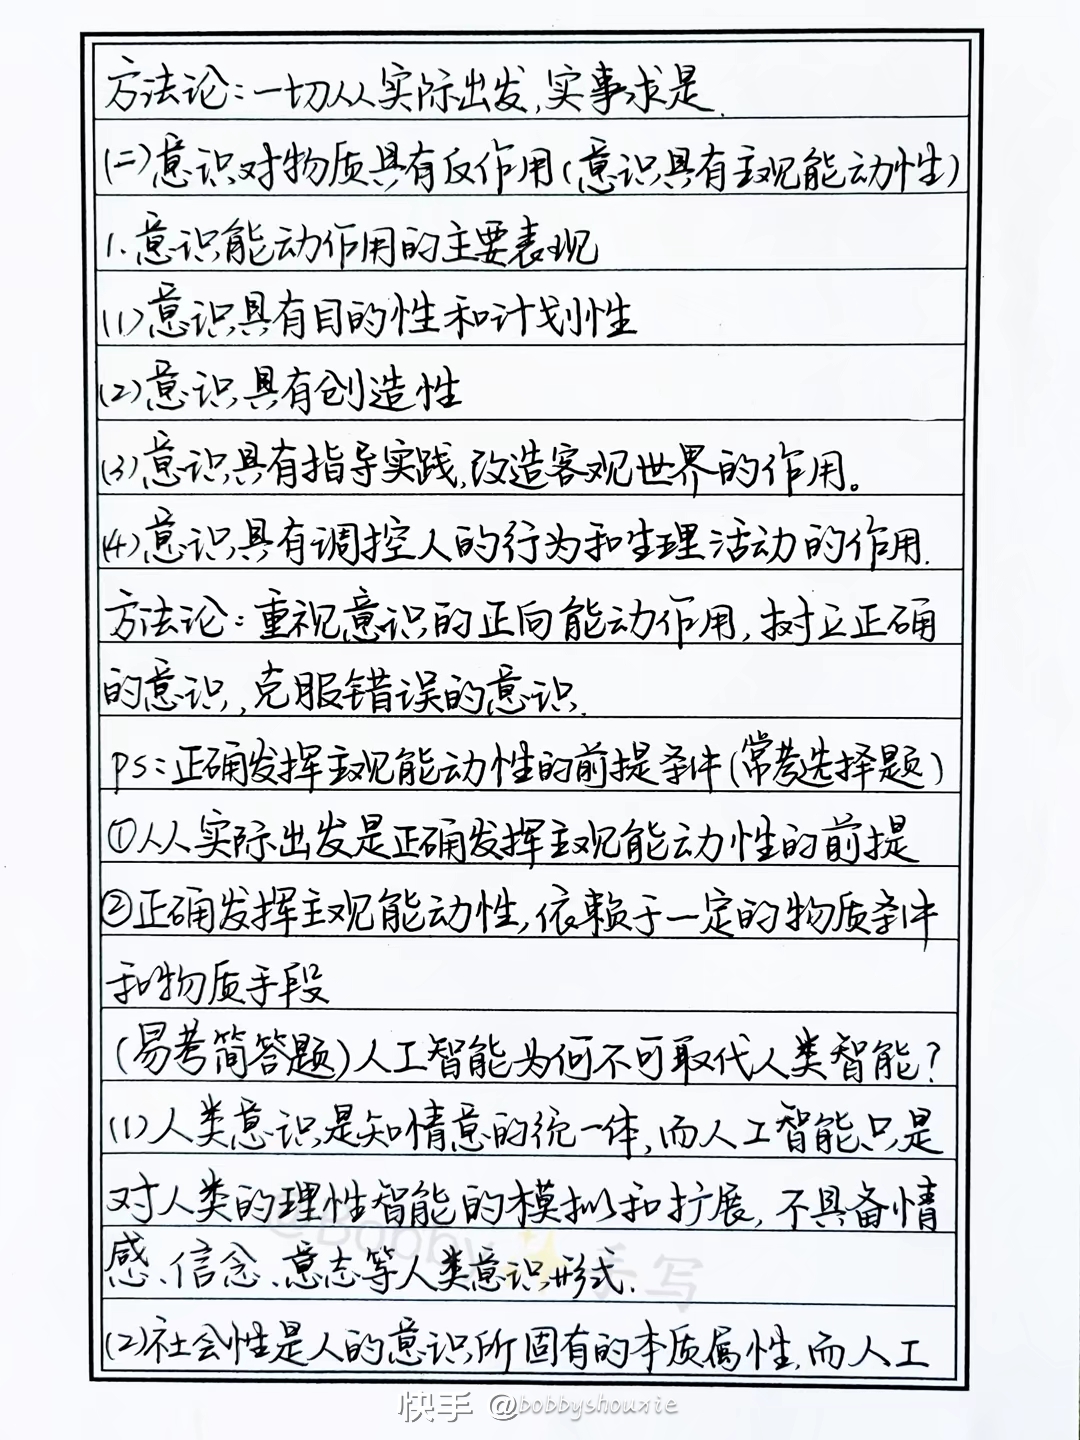 方法论：一切从实际出发，实事求是.
(二)意识对物质具有反作用(意识具有主观能动性)
1.意识能动作用的主要表现
(1)意识具有目的性和计划性
(2)意识具有创造性
(3)意识具有指导实践，改造客观世界的作用。
(4)意识具有调控人的行为和生理活动的作用.
方法论：重视意识的正向能动作用，树立正确
的意识，克服错误的意识.
ps：正确发挥主观能动性的前提条件(常考选择题)
①从实际出发是正确发挥主观能动性的前提
②正确发挥主观能动性，依赖于一定的物质条件
和物质手段
(易考简答题)人工智能为何不可取代人类智能？
(1)人类意识是知情意的统一体，而人工智能只是
对人类的理性智能的模拟和扩展，不具备情
感、信念、意志等人类意识形式.
(2)社会性是人的意识所固有的本质属性，而人工
@Bobby✨手写
快手 @bobbyshouxie